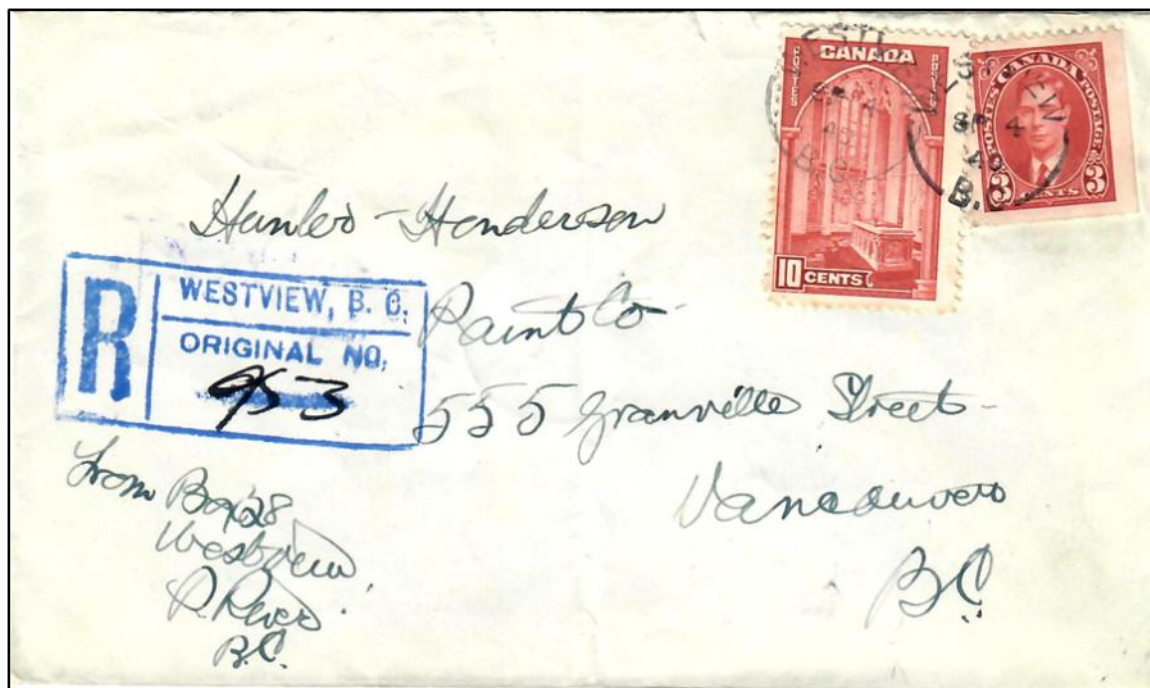 CANADA
POSTES POSTAGE
10 CENTS
POSTES CANADA POSTAGE
3 CENTS 3
WESTVIEW
SP 4
40
B.C.
WESTVIEW
SP 4
40
B.
Hunter-Henderson
Paint Co
555 Granville Street
Vancouver
B.C.
R
WESTVIEW, B. C.
ORIGINAL NO.
953
From Box 28
Westview
P. River
B.C.